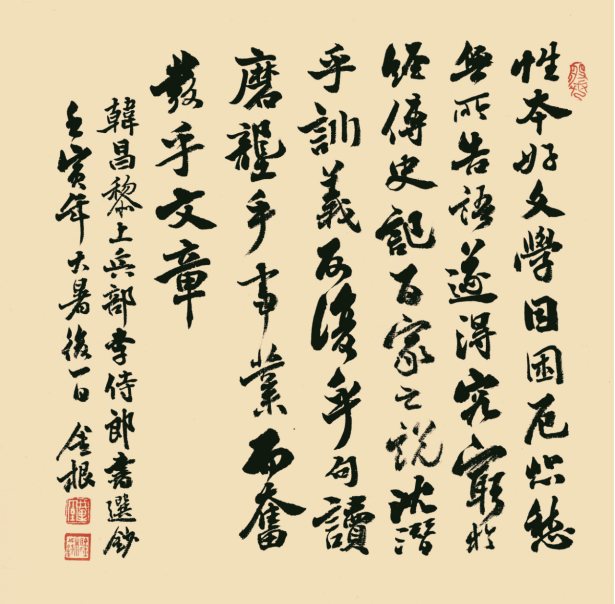 性本好文學因困厄悲愁
無所告語遂得究窮於
經傳史記百家之說沈潛
乎訓義反復乎句讀
礱磨乎事業而奮
發乎文章
韓昌黎上兵部李侍郎書選鈔
壬寅年大暑後一日 金根